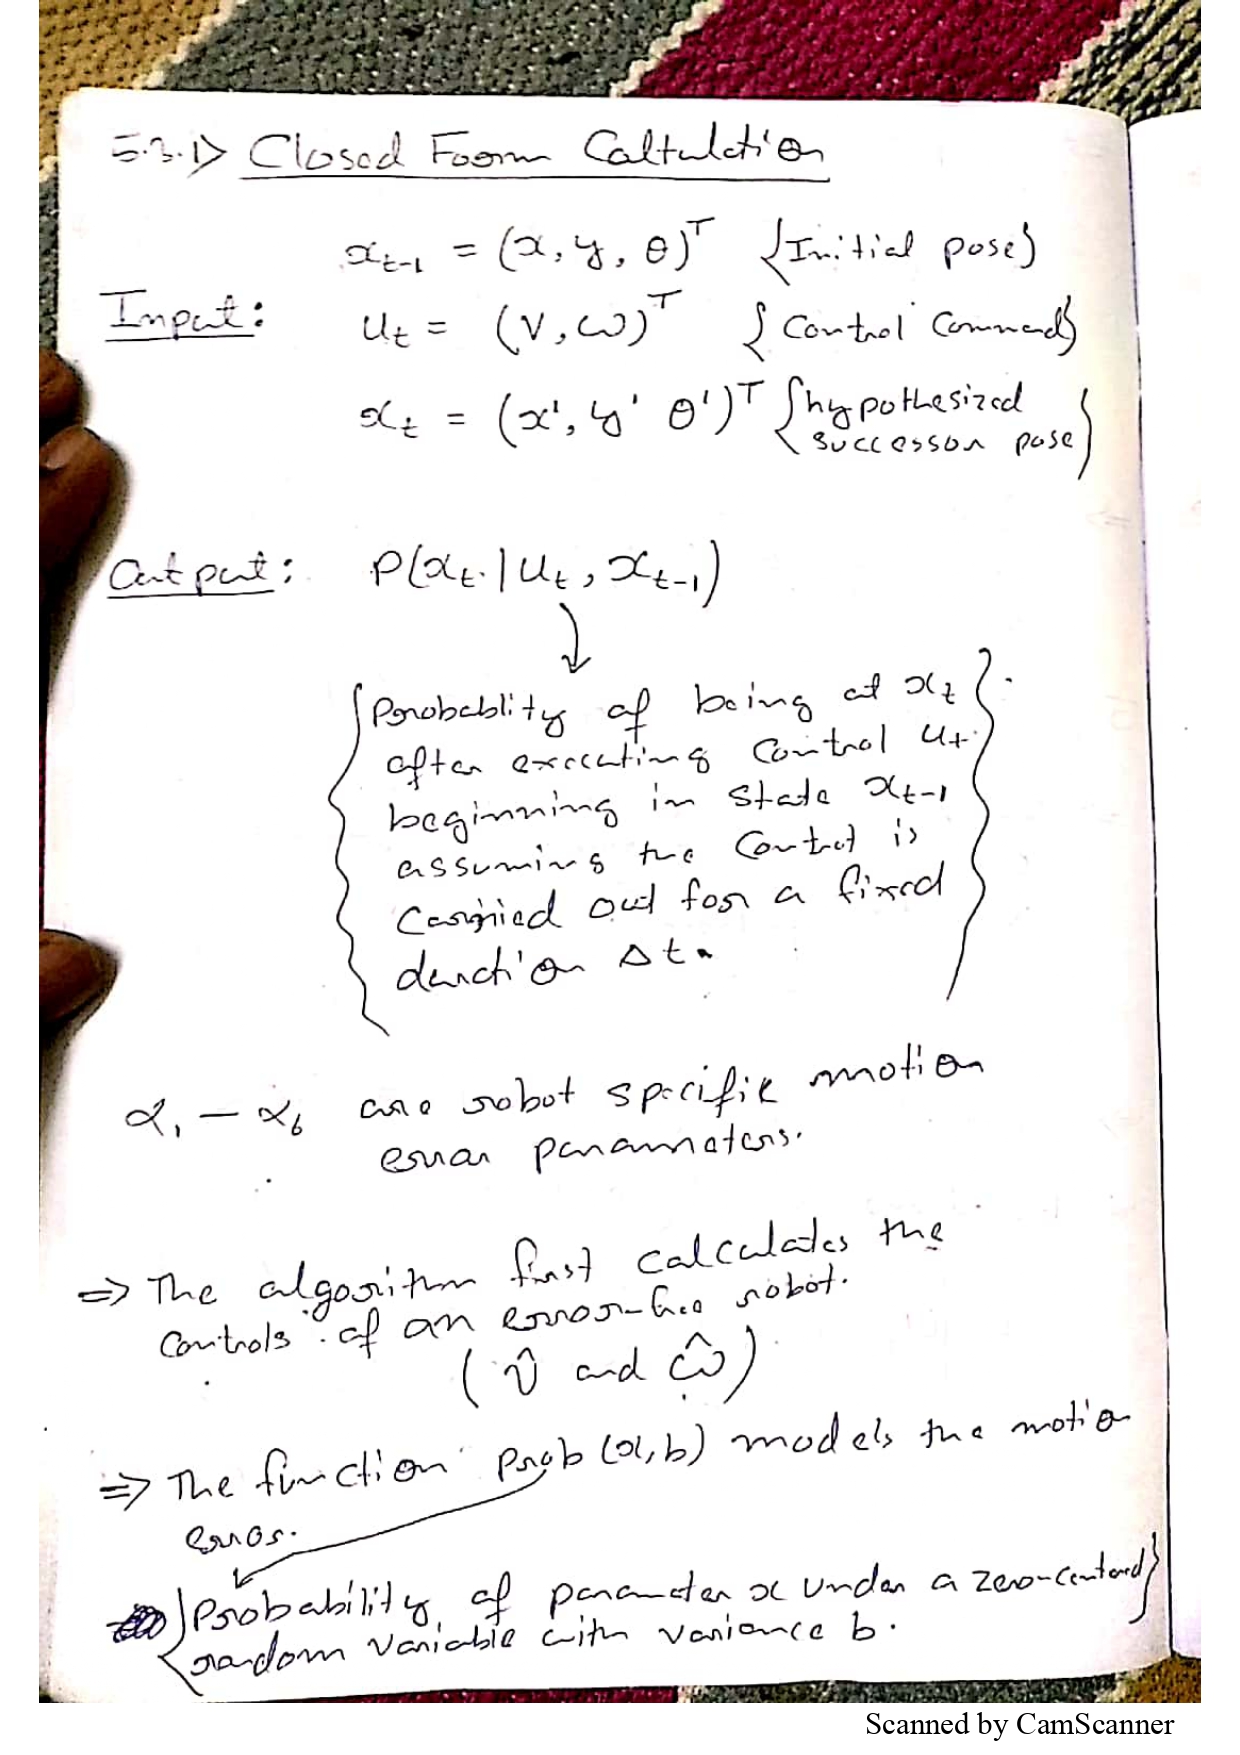 5.3.1> Closed Form Caltulation
x_{t-1} = (x, y, θ)^T {Initial pose}
Input: u_t = (v, ω)^T {Control Command}
x_t = (x', y' θ')^T {hypothesized
successor pose}
Output: P(x_t | u_t, x_{t-1})
↓
{Probablity of being at x_t
after executing control u_t
beginning in state x_{t-1}
assuming the control is
carried out for a fixed
duration Δt.}
α_1 – α_6 are robot specific motion
error parameters.
⇒ The algorithm first calculates the
controls of an error-free robot.
(v̂ and ω̂)
⇒ The function Prob(x, b) models the motion
error.
{Probability of parameter x under a zero-centered
random variable with variance b.}
Scanned by CamScanner